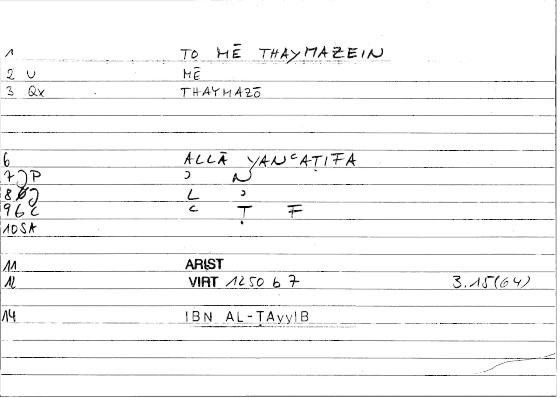 1 TO MĒ THAYMAZEIN
2 U MĒ
3 Qx THAYMAZŌ
6 ALLĀ YANᶜAṬIFA
7 JP ʾ N
8 J L ʾ
9 6C ᶜ Ṭ F
10 SA
11 ARIST
12 VIRT 1250 b 7 3.15(64)
14 IBN AL-ṬAyyIB